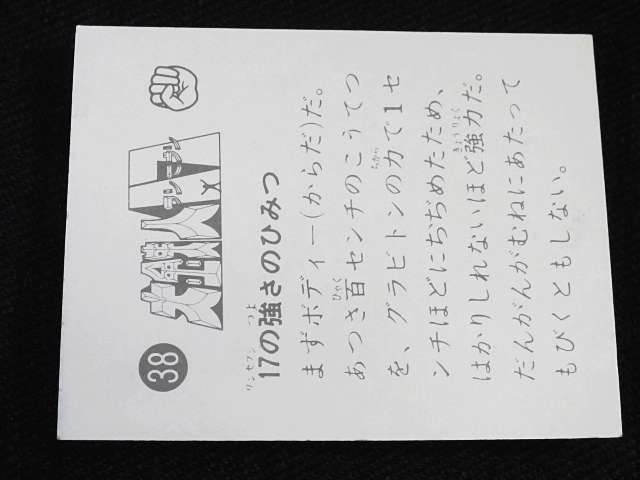 38
大鉄人17
ワンセブン
17の強さのひみつ
まずボディー(からだ)だ。
あつさ百センチのこうてつ
を、グラビトンの力で1セ
ンチほどにちぢめたため、
はかりしれないほど強力だ。
だんがんがむねにあたって
もびくともしない。